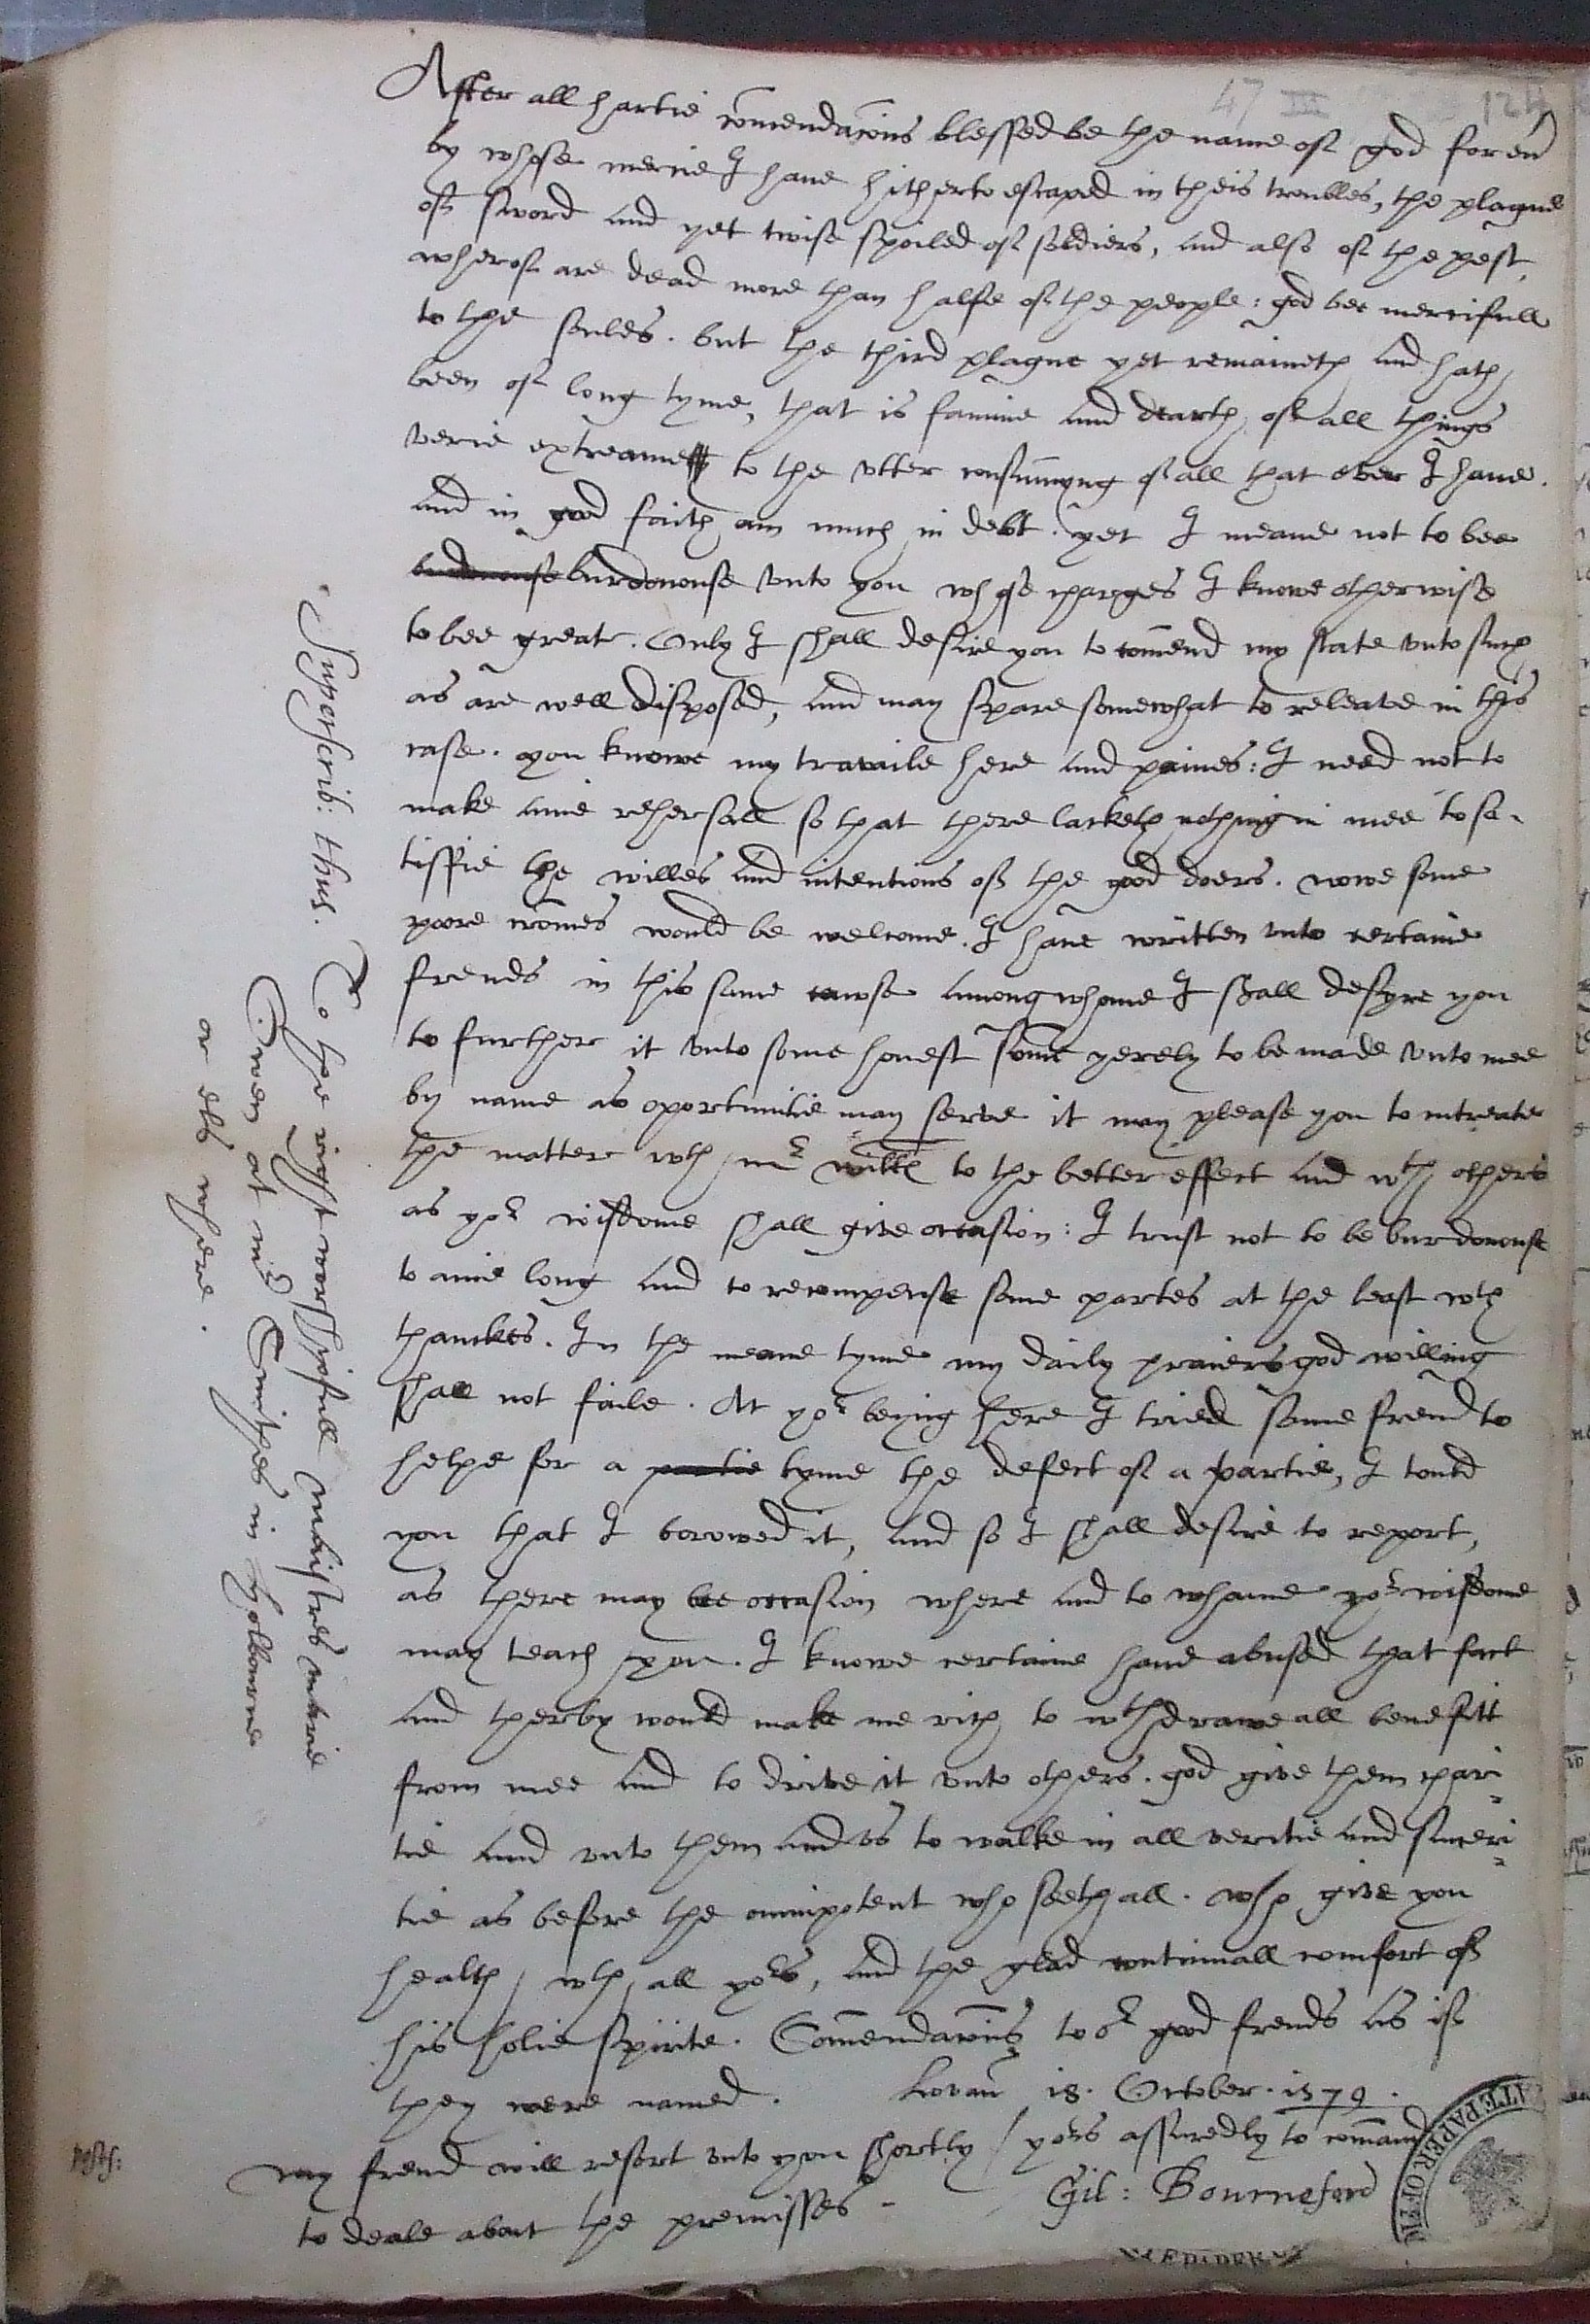 47 III 124
After all hartie com̄endac̄ons blessed be the name of god for eu̅
by whose mercie I haue hitherto escaped in theis troubles, the plague
of sword and yet twise spoiled of soldiers, and also of the pest,
wherof are dead more than halfe of the people: god bee mercifull
to the soules. but the third plague yet remaineth and hath
been of long tyme, that is famine and dearth of all things
verie extreame to the vtter consum̄yng of all that ever I haue.
and in good faith am much in debt. yet I meane not to bee
burdonouse vnto you whose charges I knowe otherwise
to bee great. Only I shall desire you to com̄end my state vnto such
as are well disposed, and may spare somewhat to releave in this
case. you knowe my travaile here and paines: I need not to
make anie rehersall so that there lacketh nothing in mee to sa-
tisffie the willes and intentions of the good doers. nowe some
poore crōmes would be welcome. I have written vnto certaine
frends in this same cawse among whome I shall desyre you
to further it vnto some honest som̄e yerely to be made vnto mee
by name as oportunitie may serve it may please you to intreate
the matter wth mr to the better effect and wth others
as yor wisdome shall give occasion: I trust not to be burdonouse
to anie long and to recompense some partes at the least wth
thanckes. In the meane tyme my daily praiers god willing
shall not faile. At yor beyng here I tried some frend to
helpe for a partie tyme the defect of a partie, I tould
you that I borowed it, and so I shall desire to report,
as there may bee occasion where and to whome yor wisdome
may teach you. I knowe certaine haue abused that fact
and therby would make me rich to wthdrawe all benefitt
from mee and to drive it vnto others. god give them chari-
tie and vnto them and vs to walke in all veritie and sinceri-
tie as before the omnipotent who seeth all. who give you
health, wth all yors, and the glad continuall comfort of
his holie spirite. Com̄endac̄ons to or good frends as if
they were named. Lovan̄ 18. October. 1579.
postsc: my frend will resort vnto you shortly / yors assuredly to com̄aund
to deale about the premisses - Gil: Bourneford
Superscrib: thus. To the right worshipfull maistres marie
Owen at mr Smithes in holborne
or els where.